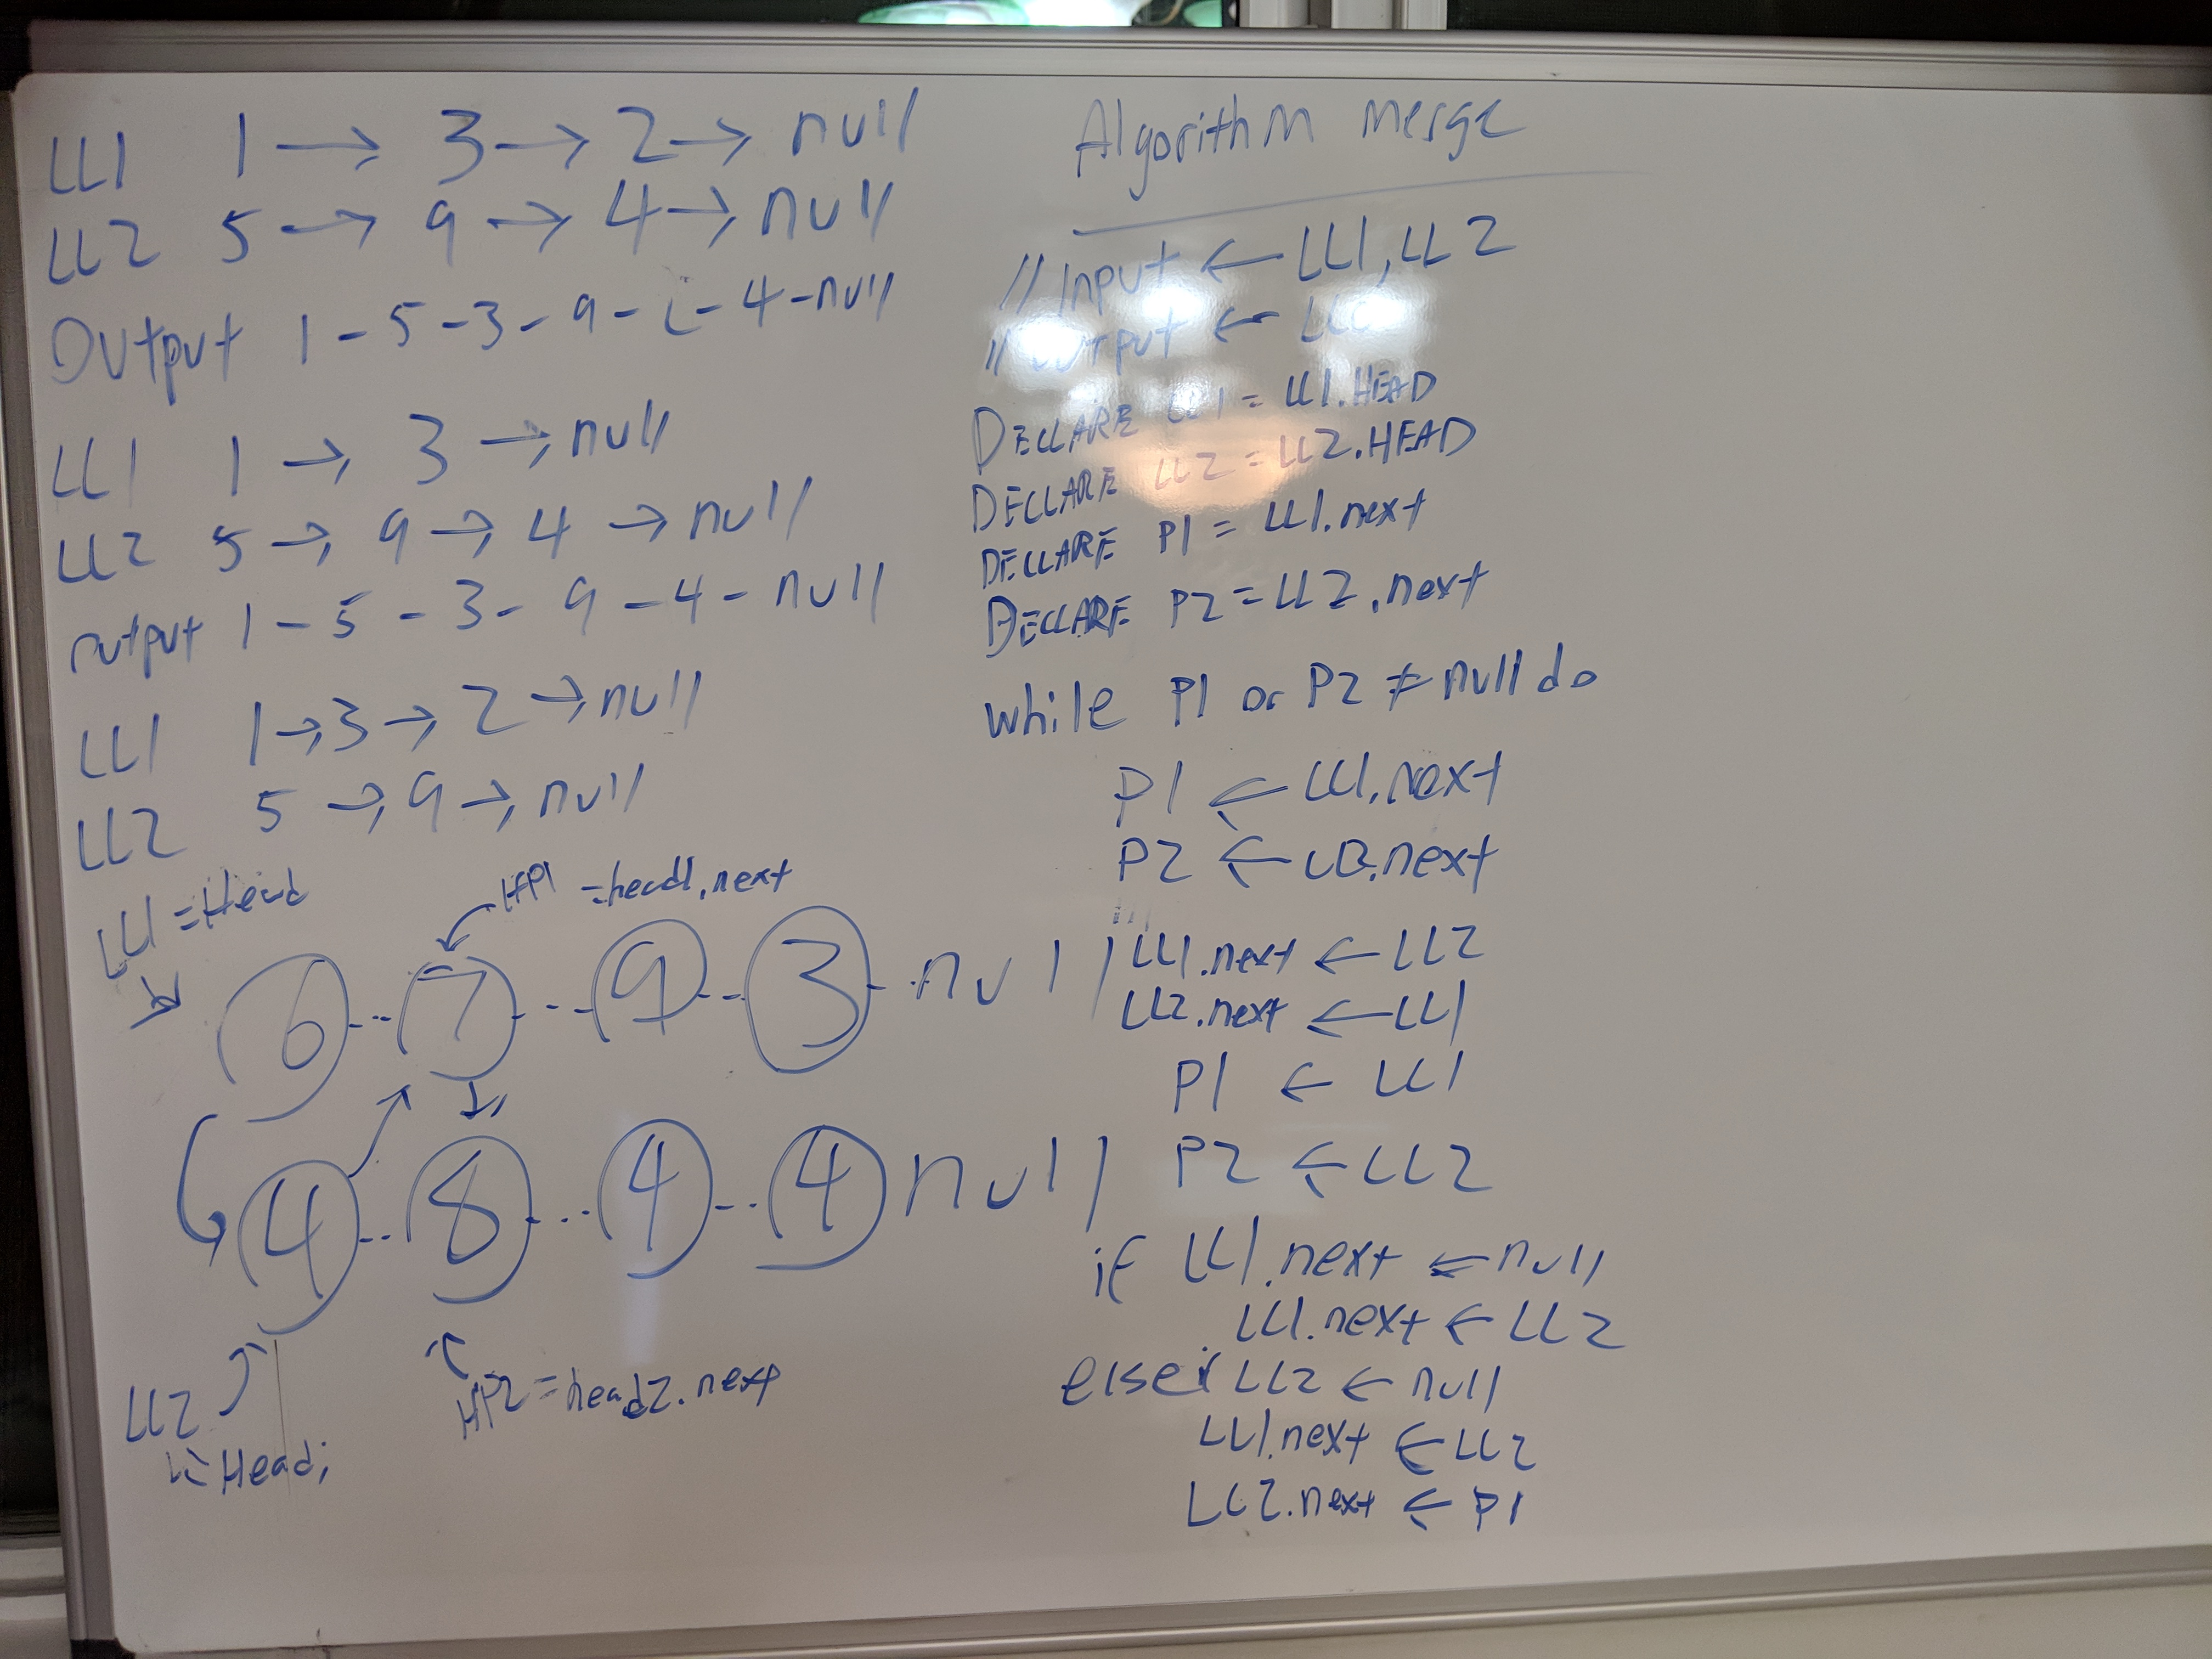 LL1 1 → 3 → 2 → null
LL2 5 → 9 → 4 → null
Output 1 - 5 - 3 - 9 - 2 - 4 - null
LL1 1 → 3 → null
LL2 5 → 9 → 4 → null
output 1 - 5 - 3 - 9 - 4 - null
LL1 1 → 3 → 2 → null
LL2 5 → 9 → null
LL1 = Head
HP1 = head1.next
6 7 9 3 null
4 8 4 4 null
LL2
= Head;
HP2 = head2.next
Algorithm merge
// Input ← LL1, LL2
// Output ←
DECLARE LL1 = LL1.HEAD
DECLARE LL2 = LL2.HEAD
DECLARE P1 = LL1.next
DECLARE P2 = LL2.next
while P1 or P2 ≠ null do
P1 ← LL1.next
P2 ← LL2.next
LL1.next ← LL2
LL2.next ← LL1
P1 ← LL1
P2 ← LL2
if LL1.next ← null
LL1.next ← LL2
elseif LL2 ← null
LL1.next ← LL2
LL2.next ← P1